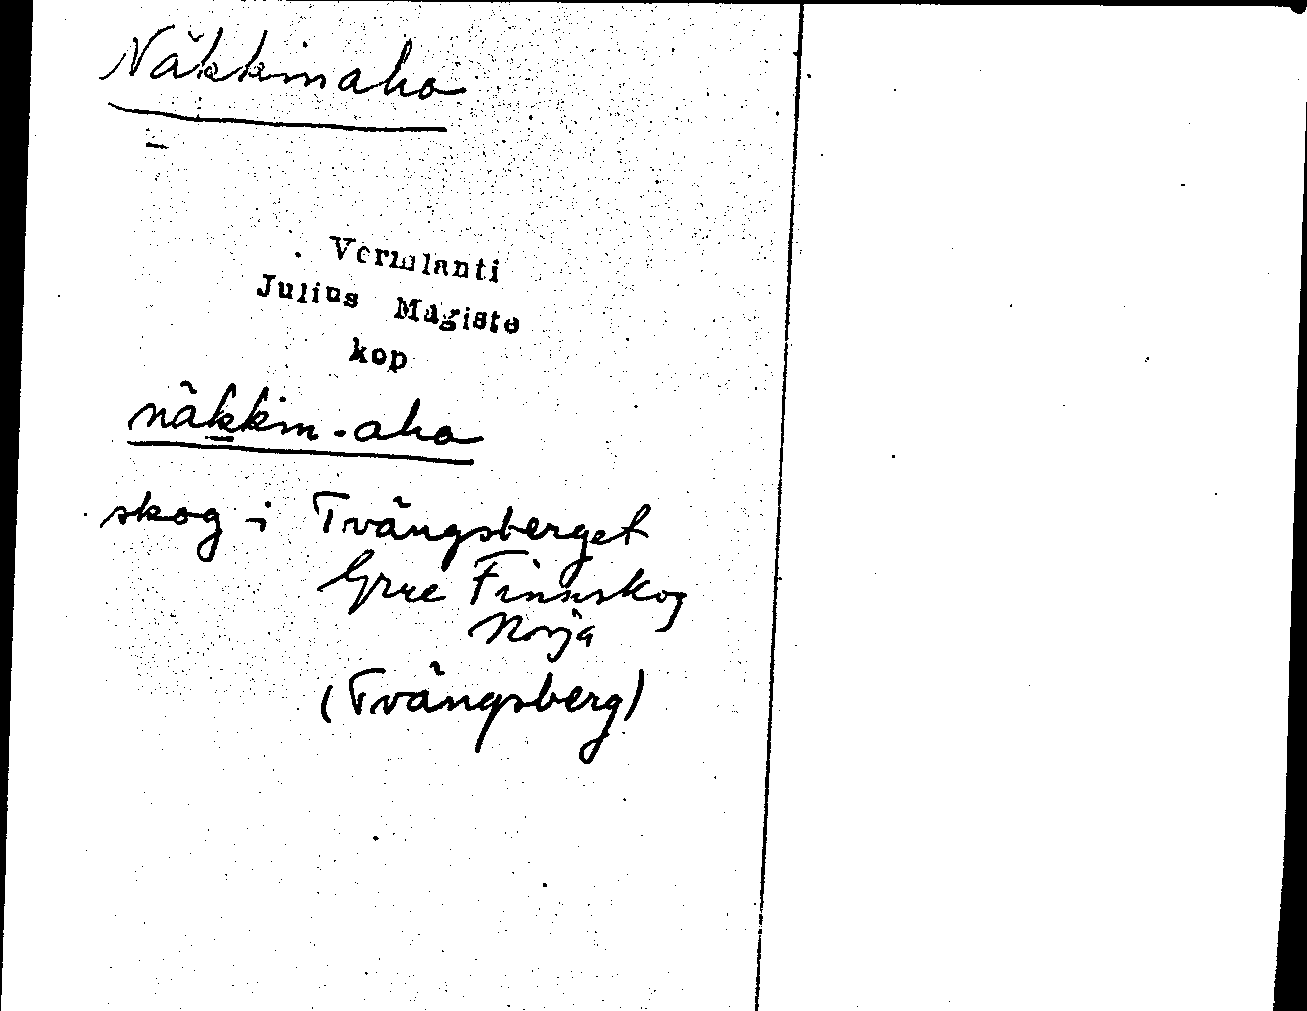 Näkkinaho
Vermlanti
Julius Mägiste
kop
näkkin-aho
skog i Tvängsberget
Grue Finnskog
Norja
(Tvängsberg)